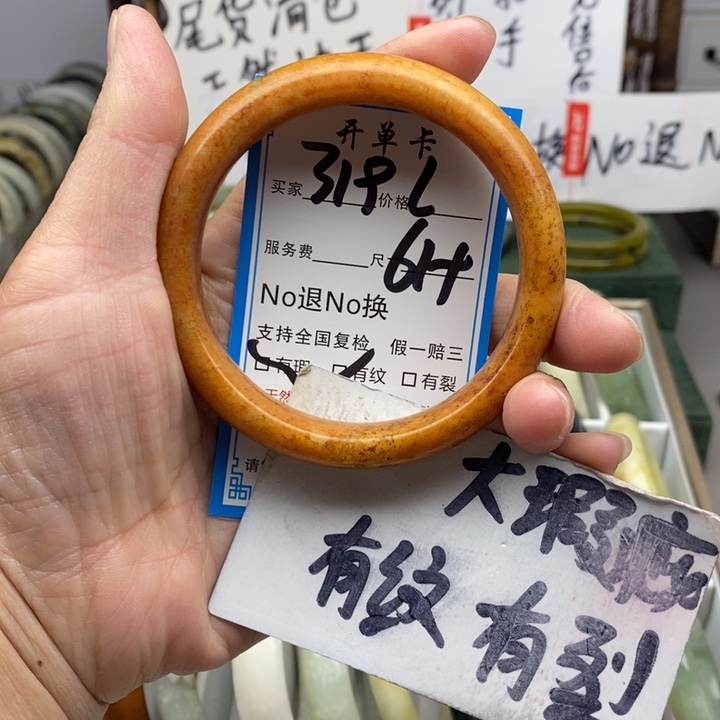 尾货清仓
天然
手
换 No退N
开单卡
买家 319 价格 L
服务费 尺 6H
No退No换
支持全国复检 假一赔三
口有瑕 口有纹 口有裂
天然
请
大瑕疵
有纹 有裂